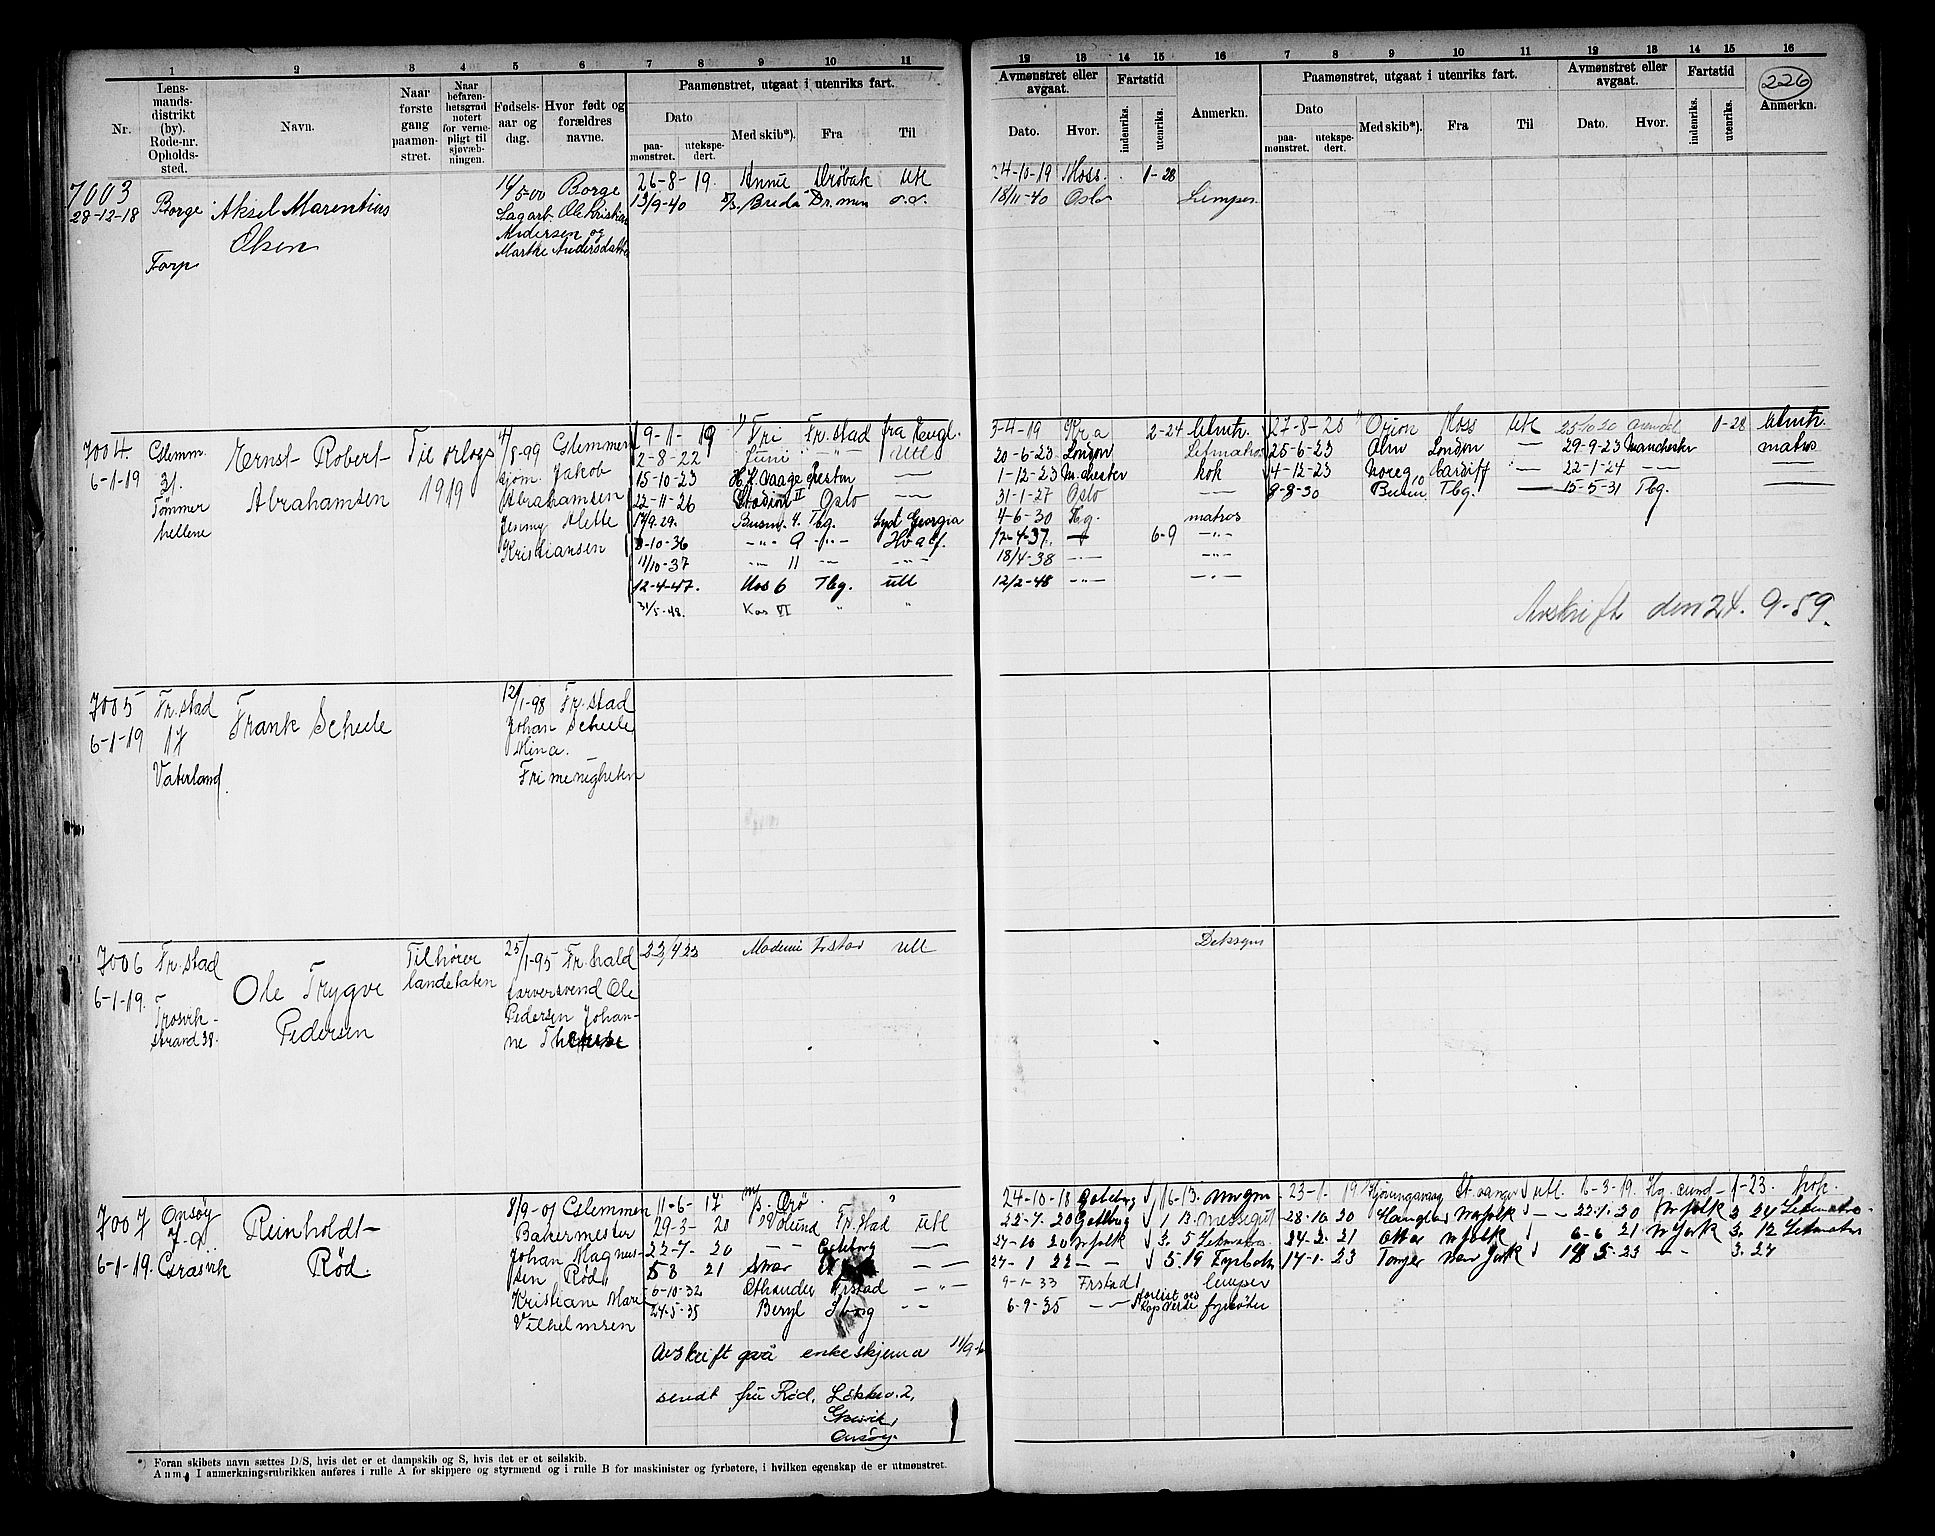 1 2 3 4 5 6 7 8 9 10 11
Nr.
Lens-
mands-
distrikt
(by).
Rode-nr.
Opholds-
sted.
Navn.
Naar
første
gang
paamøn-
stret.
Naar
befaren-
hetsgrad
notert
for verne-
pligt til
sjøvæb-
ningen.
Fødsels-
aar og
dag.
Hvor født og
forældres
navne.
Paamønstret, utgaat i utenriks fart.
Dato
paa-
mønstret.
utekspe-
dert.
Med skib*).
Fra
Til
12 13 14 15 16 7 8 9 10 11 12 13 14 15 16
Avmønstret eller
avgaat.
Dato. Hvor.
Fartstid
indenriks. utenriks.
Anmerkn.
Paamønstret, utgaat i utenriks fart.
Dato
paa-
mønstret.
utekspe-
dert.
Med skib*).
Fra
Til
Avmønstret eller
avgaat.
Dato. Hvor.
Fartstid
indenriks. utenriks.
226
Anmerkn.
7003
28-12-18
Borge
Torp
Aksel Marentius
Olsen
16/5-00 Borge
Ole Kristian
Andersen og
Marthe Andersdatter
26-8-19. Annie Drøbak utl
13/9-40 Breda Dr.men
24-10-19 Moss. 1-28
18/11-40 Oslo Lemper
7004
6-1-19
Glemm.
31.
Tømmer
hellene
Ernst Robert
Abrahamsen
Til orlogs
1919
4/8-99 Glemmen
Jakob
Abrahamsen
Jenny Alette
Kristiansen
9-1-19 Fri Fr.stad fra Engl.
2-8-22 Juni -"- utl
15-10-23 Chester —
22-11-26 Stadion II Oslo —
17/9.29. Tbg. Syd Georgia
8-10-36 -"- 9 -"- Hvalf.
11/10-37 -"- 11 -"-
12-4-47. Kos 6 Tbg. utl
31/5-48. Kos VI " "
3-4-19 Kr.a 2-24
20-6-23 London Letmatros
1-12-23 M.chester kok
31-1-27 Oslo —
4-6-30 Tbg. matros
12-4-37. — 6-9 -"-
18/4-38 -"- -"-
12/2-48 -"- -"-
27-8-20 Orion Moss utl 25/10 20 Arendal 1-28
25-6-23 Alm London — 29-9-23 Manchester matros
4-12-23 Noreg Cardiff — 22-1-24 — —
9-8-30 Tbg. — 15-5-31 Tbg. —
Avskrift den 24. 9-59.
7005
6-1-19
Fr.stad
17
Vaterland.
Frank Scheele
12/1-98 Fr.stad
Johan Scheele
Mina.
Frimenigheten
7006
6-1-19.
Fr.stad
Trosvik-
strand 38.
Ole Trygve
Pedersen
Tilhører
landetaten
25/1-95 Fr.hald
farversvend Ole
Pedersen Johan-
ne Therese
23/4 23 Frstad utl
Deksgut
7007
6-1-19.
Onsøy
7-9
Græsvik
Reinholdt
Rød.
8/9-01 Glemmen
Bakermester
Johan Magnus-
sen Rød,
Kristiane Marie
Vilhelmsen
11-6-17 "
29-3-20 Fr.stad utl
22-7-20 -"- Goteborg —
5 8 21 —
6-10-32 Frstad -"-
24-5-35 Beryl --
Avskrift på enkeskjema 11/9-6
sendt fru Rød, Løkkev. 2,
Græsvik,
Onsøy.
24-10-18 Goteborg 16-13.
22-7. 20 Gotebg 1 13. messegut
27-10 20 Norfolk 3. 5 Letmatros
27- 1 22 — - 5.19 Fyrboter
9-1-33 Frstad lemper
6-9-35 -"- fyrbøter
23-1-19 St.vanger utl. 6-3-19. 1-23. kok.
28-10 20 Norfolk — 22-1-20 Norfolk 2 24 Letmatro
24-2-21 Otta Norfolk 6-6 21 N York 3. 12 Letmatros
14-1-23 New York 14 5-23 -"- 3. 27
*) Foran skibets navn sættes D/S, hvis det er et dampskib og S, hvis det er et seilskib.
Anm. I anmerkningsrubrikken anføres i rulle A for skippere og styrmænd og i rulle B for maskinister og fyrbøtere, i hvilken egenskap de er utmønstret.